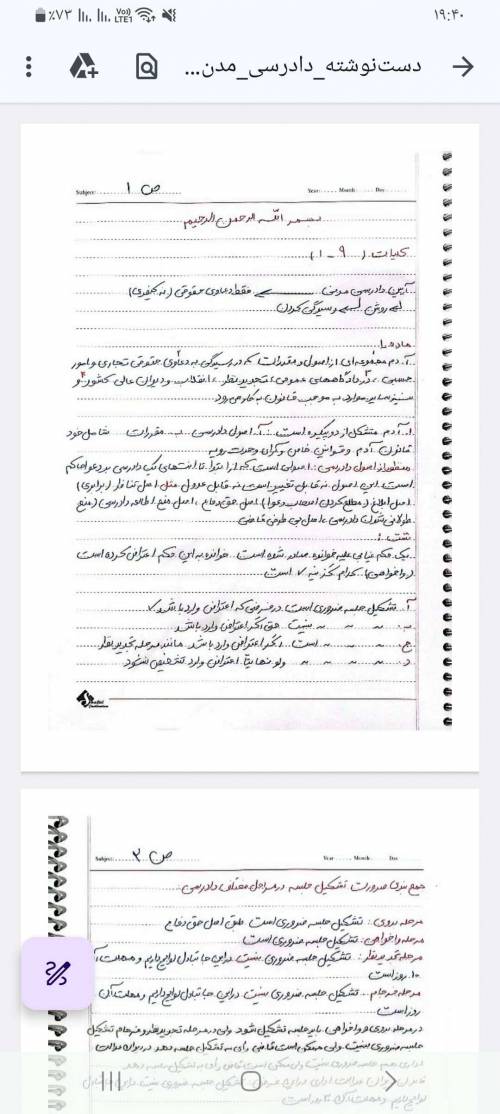 ٪۷۳ Vo)) LTE1 ۱۹:۴۰
دست‌نوشته_دادرسی_مدن...
Subject: ص ۱ Year: Month: Day:
بسم الله الرحمن الرحیم
کلیات (۹-۱)
آیین دادرسی مدنی فقط دعاوی حقوقی (نه کیفری)
روش رسیدگی کردن
ماده ۱:
آ.د.م مجموعه‌ای از اصول و مقررات که در رسیدگی به دعاوی حقوقی تجاری و امور
حسبی در دادگاههای عمومی، تجدیدنظر، انقلاب و دیوان عالی کشور و
سایر موارد به موجب قانون به کار می‌رود
آ.د.م متشکل از دو پیکره است: اصول دادرسی مقررات شامل خود
قانون آ.د.م و قوانین خاص و آرای وحدت رویه
منظور از اصول دادرسی: اصولی است که از ابتدا تا انتهای یک دادرسی بر دعوا حاکم
است این اصول نه قابل تغییر است نه قابل عدول مثل اصل تناظر (برابری)
اصل ابلاغ (مطلع کردن اصحاب دعوا) اصل حق دفاع، اصل منع اطاله دادرسی (منع
طولانی شدن دادرسی)، اصل بی طرفی قاضی
تست:
یک حکم غیابی علیه خوانده صادر شده است. خوانده به این حکم اعتراض کرده است
(واخواهی) کدام گزینه است
آ. تشکیل جلسه ضروری است در صورتی که اعتراض وارد باشد
ب. نیست حتی اگر اعتراض وارد باشد
ج. است اگر اعتراض وارد باشد مانند مرحله تجدیدنظر
د. ولو نهایتا اعتراض وارد تشخیص نشود
Subject: ص ۲ Year: Month: Day:
جمع بندی ضرورت تشکیل جلسه در مراحل مختلف دادرسی:
مرحله بدوی: تشکیل جلسه ضروری است طبق اصل حق دفاع
مرحله واخواهی: تشکیل جلسه ضروری است
مرحله تجدیدنظر: تشکیل جلسه ضروری نیست در این جا تبادل لوایح داریم و مهلت آن
۱۰ روز است
مرحله فرجام: تشکیل جلسه ضروری نیست در این جا تبادل لوایح داریم و مهلت آن
روز است
در مرحله بدوی و واخواهی باید جلسه تشکیل شود ولی در مرحله تجدیدنظر و فرجام تشکیل
جلسه ضروری نیست ولی ممکن است قاضی رأی به تشکیل جلسه دهد در دیوان عدالت